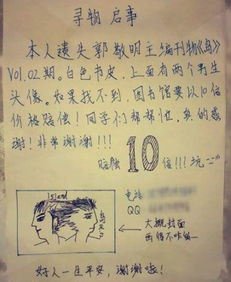 寻物启事
本人遗失郭敬明主编刊物《岛》
Vol.02期。白色书皮，上面有两个男生
头像。如果找不到，图书馆要以10倍
价格赔偿！同学们帮帮忙，真的感
谢！非常谢谢！！！
赔偿10倍！！！坑
island
电话
QQ
大概封面
画得不咋做
好人一生平安，谢谢啦！